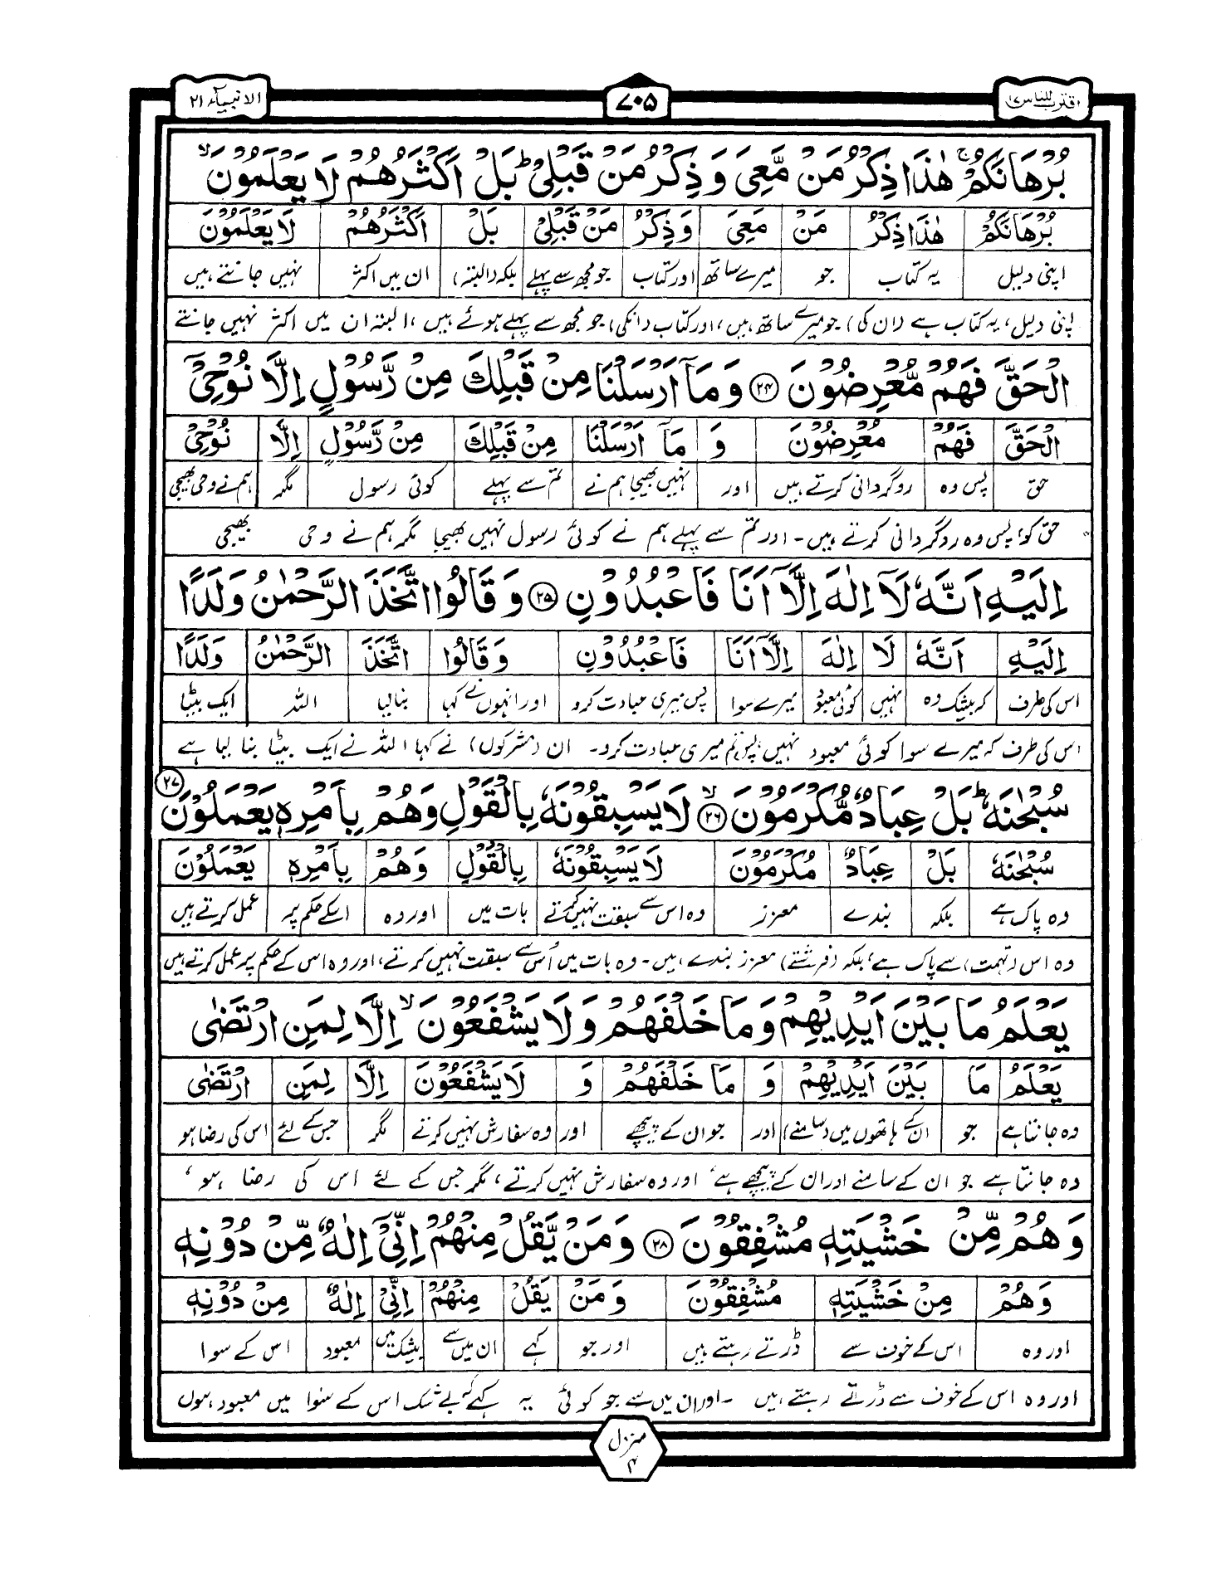 اقترب للناس ۱۷
۷۰۵
الانبیآء ۲۱
بُرْهَانَكُمْ ۚ هٰذَا ذِكْرُ مَنْ مَّعِیَ وَ ذِكْرُ مَنْ قَبْلِیْ ؕ بَلْ اَكْثَرُهُمْ لَا یَعْلَمُوْنَ ۙ
بُرْهَانَكُمْ هٰذَا ذِكْرُ مَنْ مَعِیَ وَ ذِكْرُ مَنْ قَبْلِیْ بَلْ اَكْثَرُهُمْ لَا یَعْلَمُوْنَ
اپنی دلیل یہ کتاب جو میرے ساتھ اور کتاب جو مجھ سے پہلے بلکہ (البتہ) ان میں اکثر نہیں جانتے ہیں
اپنی دلیل، یہ کتاب ہے (ان کی) جو میرے ساتھ ہیں، اور کتاب (انکی) جو مجھ سے پہلے ہوئے ہیں، البتہ ان میں اکثر نہیں جانتے
الْحَقَّ فَهُمْ مُّعْرِضُوْنَ ۲۴ وَ مَاۤ اَرْسَلْنَا مِنْ قَبْلِكَ مِنْ رَّسُوْلٍ اِلَّا نُوْحِیْۤ
الْحَقَّ فَهُمْ مُعْرِضُوْنَ وَ مَاۤ اَرْسَلْنَا مِنْ قَبْلِكَ مِنْ رَّسُوْلٍ اِلَّا نُوْحِیْ
حق پس وہ روگردانی کرتے ہیں اور نہیں بھیجا ہم نے تم سے پہلے کوئی رسول مگر ہم نے وحی بھیجی
حق کو، پس وہ روگردانی کرتے ہیں۔ اور تم سے پہلے ہم نے کوئی رسول نہیں بھیجا مگر ہم نے وحی بھیجی
اِلَیْهِ اَنَّهٗ لَاۤ اِلٰهَ اِلَّاۤ اَنَا فَاعْبُدُوْنِ ۲۵ وَ قَالُوا اتَّخَذَ الرَّحْمٰنُ وَلَدًا
اِلَیْهِ اَنَّهٗ لَا اِلٰهَ اِلَّاۤ اَنَا فَاعْبُدُوْنِ وَ قَالُوا اتَّخَذَ الرَّحْمٰنُ وَلَدًا
اس کی طرف کہ بیشک وہ نہیں کوئی معبود میرے سوا پس میری عبادت کرو اور انہوں نے کہا بنا لیا اللہ ایک بیٹا
اس کی طرف کہ میرے سوا کوئی معبود نہیں، پس تم میری عبادت کرو۔ ان (مشرکوں) نے کہا اللہ نے ایک بیٹا بنا لیا ہے
سُبْحٰنَهٗ ؕ بَلْ عِبَادٌ مُّكْرَمُوْنَ ۙ ۲۶ لَا یَسْبِقُوْنَهٗ بِالْقَوْلِ وَ هُمْ بِاَمْرِهٖ یَعْمَلُوْنَ ۲۷
سُبْحٰنَهٗ بَلْ عِبَادٌ مُكْرَمُوْنَ لَا یَسْبِقُوْنَهٗ بِالْقَوْلِ وَ هُمْ بِاَمْرِهٖ یَعْمَلُوْنَ
وہ پاک ہے بلکہ بندے معزز وہ اس سے سبقت نہیں کرتے بات میں اور وہ اسکے حکم پر عمل کرتے ہیں
وہ اس (تہمت) سے پاک ہے، بلکہ (فرشتے) معزز بندے ہیں۔ وہ بات میں اُس سے سبقت نہیں کرتے، اور وہ اس کے حکم پر عمل کرتے ہیں
یَعْلَمُ مَا بَیْنَ اَیْدِیْهِمْ وَ مَا خَلْفَهُمْ وَ لَا یَشْفَعُوْنَ ۙ اِلَّا لِمَنِ ارْتَضٰی
یَعْلَمُ مَا بَیْنَ اَیْدِیْهِمْ وَ مَا خَلْفَهُمْ وَ لَا یَشْفَعُوْنَ اِلَّا لِمَنِ ارْتَضٰی
وہ جانتا ہے جو ان کے ہاتھوں میں (سامنے) اور جو ان کے پیچھے اور وہ سفارش نہیں کرتے مگر جس کے لئے اس کی رضا ہو
وہ جانتا ہے جو ان کے سامنے اور ان کے پیچھے ہے، اور وہ سفارش نہیں کرتے، مگر جس کے لئے اس کی رضا ہو،
وَ هُمْ مِّنْ خَشْیَتِهٖ مُشْفِقُوْنَ ۲۸ وَ مَنْ یَّقُلْ مِنْهُمْ اِنِّیْۤ اِلٰهٌ مِّنْ دُوْنِهٖ
وَ هُمْ مِنْ خَشْیَتِهٖ مُشْفِقُوْنَ وَ مَنْ یَقُلْ مِنْهُمْ اِنِّیْ اِلٰهٌ مِنْ دُوْنِهٖ
اور وہ اس کے خوف سے ڈرتے رہتے ہیں اور جو کہے ان میں سے بیشک میں معبود اس کے سوا
اور وہ اس کے خوف سے ڈرتے رہتے ہیں۔ اور ان میں سے جو کوئی یہ کہے کہ بے شک اس کے سوا میں معبود ہوں
منزل ۴